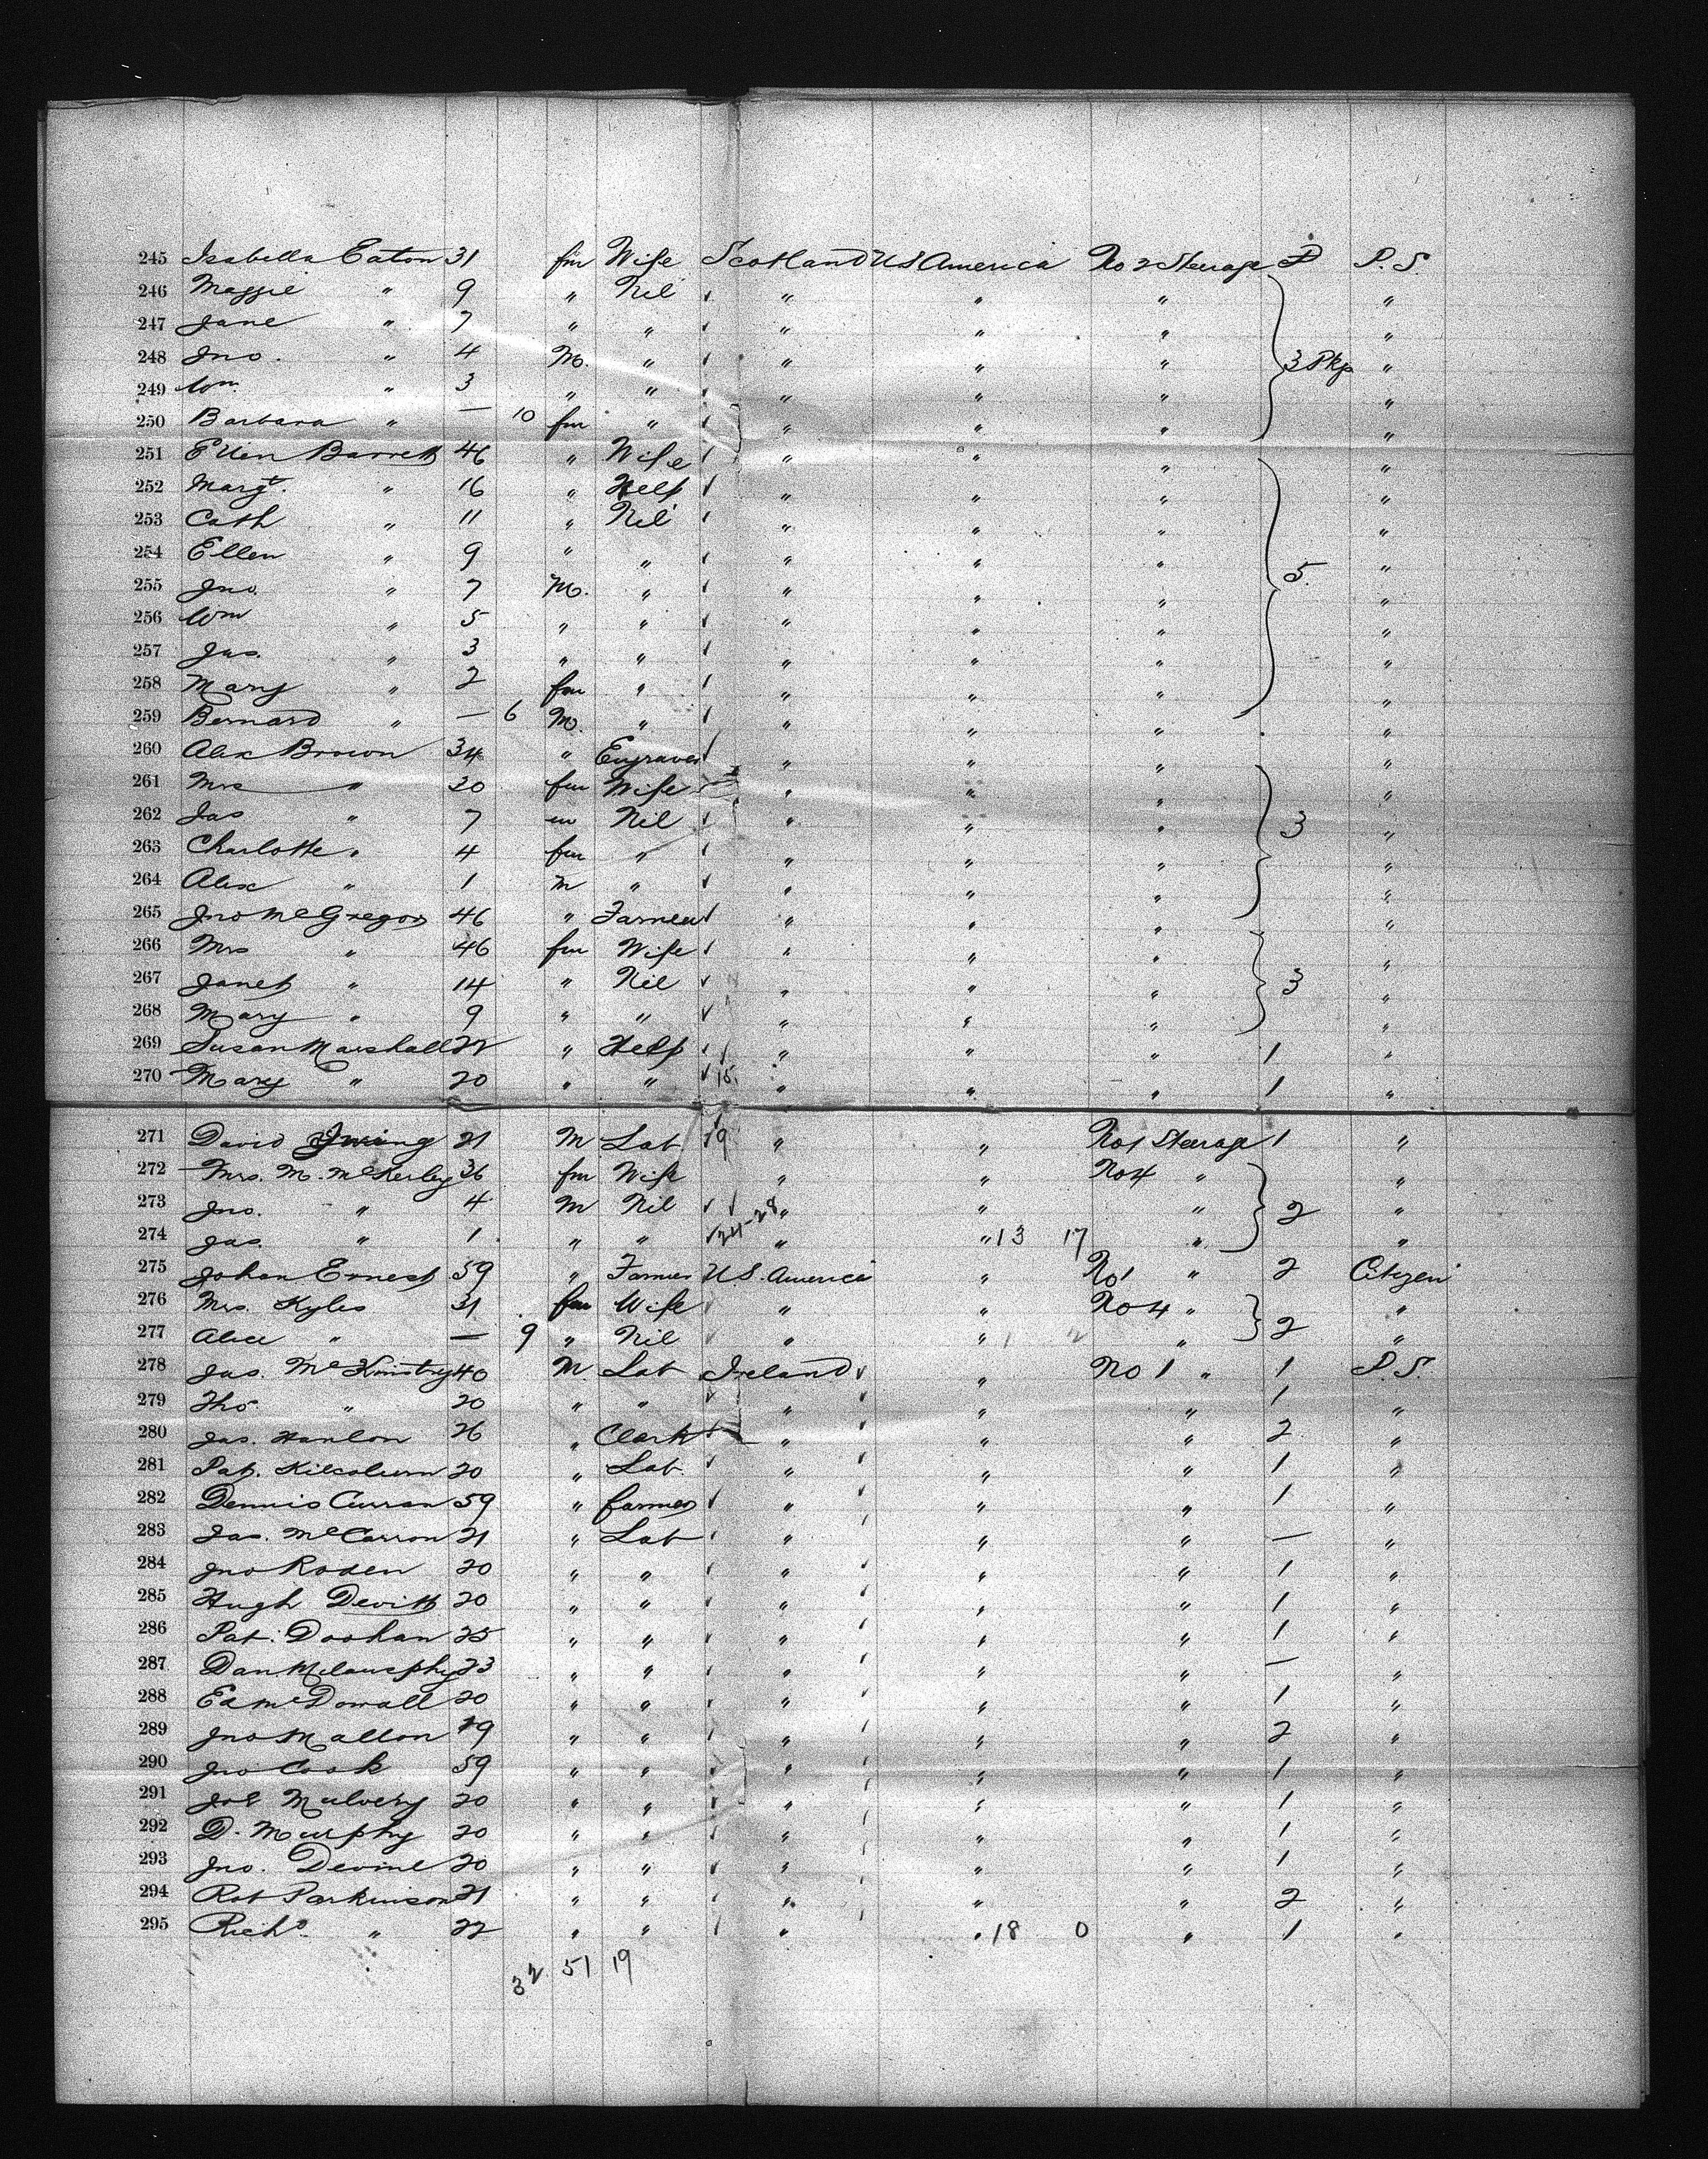 245 Isabella Eaton 31 fm Wife Scotland US America No 2 Steerage P. S.
246 Maggie " 9 " Nil " " " "
247 Jane " 7 " " " " " "
248 Jno. " 4 M. " " " " 3 Pkg "
249 Wm " 3 " " " " " "
250 Barbara " — 10 fm " " " " "
251 Ellen Barrett 46 " Wife " " " "
252 Margt. " 16 " Help " " " "
253 Cath " 11 " Nil " " " "
254 Ellen " 9 " " " " " "
255 Jno. " 7 M. " " " " 5. "
256 Wm " 5 " " " " " "
257 Jas. " 3 " " " " " "
258 Mary " 2 fm " " " " "
259 Bernard " — 6 M. " " " " "
260 Alex Brown 34 " Engraver " " " "
261 Mrs " 30 fm Wife " " " "
262 Jas " 7 m Nil " " " 3 "
263 Charlotte " 4 fm " " " " "
264 Alex " 1 m " " " " "
265 Jno McGregor 46 " Farmer " " " "
266 Mrs " 46 fm Wife " " " "
267 Janet " 14 " Nil " " " 3 "
268 Mary " 9 " " " " " "
269 Susan Marshall 22 " Help " " " 1 "
270 Mary " 20 " " 15 " " " 1 "
271 David 21 M Lab 9 " " No 1 Steerage 1 "
272 Mrs. M. McKerley 36 fm Wife " " No 4 " "
273 Jno. " 4 M Nil " " " 2 "
274 Jas. " 1 " " 24-28 " " 13 17 " "
275 Johan Ernest 59 " Farmer US. America " No 1 " 2 Citizen
276 Mrs. Kyles 31 fm Wife " " No 4 " "
277 Alice " — 9 " Nil " " 1 2 " 2 "
278 Jas. McKinstry 40 M Lab Ireland " No 1 " 1 P. S.
279 Tho. " 20 " " " " " 1 "
280 Jas. Hanlon 26 " Clark " " " 2 "
281 Pat. Kilcolum 20 " Lab. " " " 1 "
282 Dennis Curran 59 " farmer " " " 1 "
283 Jas. McCarron 21 " Lab " " " — "
284 Jno Roden 20 " " " " " 1 "
285 Hugh Devitt 20 " " " " " 1 "
286 Pat. Doohan 25 " " " " " 1 "
287 Dan 23 " " " " " — "
288 Ed McDowall 20 " " " " " 1 "
289 Jno Mallon 19 " " " " " 2 "
290 Jno Cook 59 " " " " " 1 "
291 Jos Mulvery 20 " " " " " 1 "
292 D. Murphy 20 " " " " " 1 "
293 Jno. Devine 20 " " " " " 1 "
294 Rob Parkinson 21 " " " " " 2 "
295 Richd. " 22 " " " " 18 0 " 1 "
32 51 19